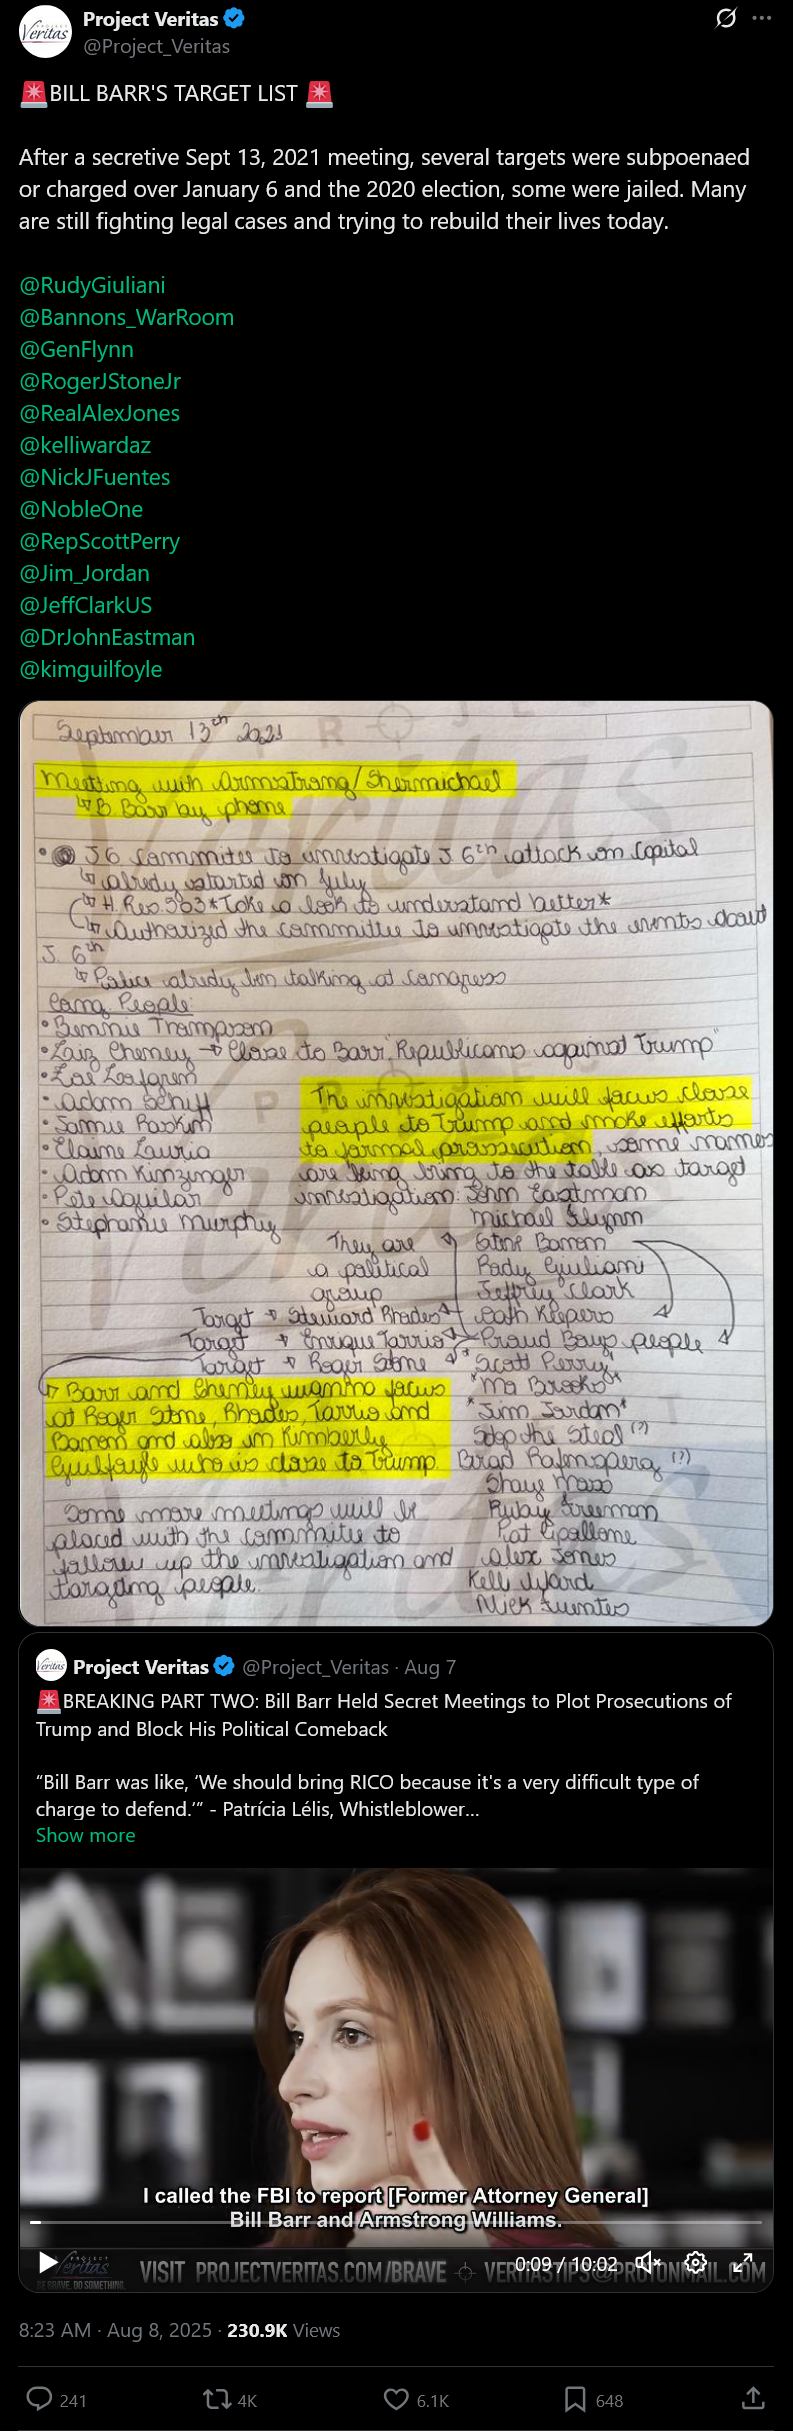 Project Veritas
@Project_Veritas
🚨BILL BARR'S TARGET LIST 🚨
After a secretive Sept 13, 2021 meeting, several targets were subpoenaed
or charged over January 6 and the 2020 election, some were jailed. Many
are still fighting legal cases and trying to rebuild their lives today.
@RudyGiuliani
@Bannons_WarRoom
@GenFlynn
@RogerJStoneJr
@RealAlexJones
@kelliwardaz
@NickJFuentes
@NobleOne
@RepScottPerry
@Jim_Jordan
@JeffClarkUS
@DrJohnEastman
@kimguilfoyle
September 13th 2021
Meeting with Armstrong/Shermichael
↳ B Barr by phone
• J6 Commitee to investigate J. 6th attack on Capital
↳ alredy started on July
↳ H. Res. 503 * Take a look to understand better *
↳ Authorized the committee to investigate the events about
J. 6th
↳ Police alredy been talking at Congress
Cong. People:
• Bennie Trompson
• Laiz Cheney → Close to Barr "Republicans against Trump"
• Zoe Loofgren
• Adam Schiff
The investigation will focus close
• Jamie Raskin
people to Trump and make efforts
• Elaine Lauria
to formal prossecution, some names
• Adam Kinzinger
are being bring to the table as target
• Pete Aguilar
investigation: John Eastman
• Stephanie Murphy
Michael Flynn
They are
Steve Bannon
a political
Rudy Gyuliani
group
Jeffrey Clark
Target → Steward Rhodes
Oath Keepers
Target → Enrique Tarrio
Proud Boys people
Target → Roger Stone
*Scott Perry*
↳ Barr and Cheney wanna focus
*Mo Brooks*
at Roger Stone, Rhodes, Tarrio and
*Jim Jordan*
Bannon and also in Kimberly
Stop the Steal (?)
Guilfoyle who is close to Trump.
Brad Rafinsperg (?)
Shaye Moss
Some more meetings will be
Rubay Freeman
placed with the committe to
Pat Cipollone
follow up the investigation and
Alex Jones
targeting people.
Kelli Ward
Nick Fuentes
PROJECT
Veritas
Project Veritas @Project_Veritas · Aug 7
🚨BREAKING PART TWO: Bill Barr Held Secret Meetings to Plot Prosecutions of
Trump and Block His Political Comeback
“Bill Barr was like, ‘We should bring RICO because it's a very difficult type of
charge to defend.’” - Patrícia Lélis, Whistleblower...
Show more
I called the FBI to report [Former Attorney General]
Bill Barr and Armstrong Williams.
0:09 / 10:02
PROJECT
Veritas
BE BRAVE. DO SOMETHING.
VISIT PROJECTVERITAS.COM/BRAVE VERITASTIPS@PROTONMAIL.COM
8:23 AM · Aug 8, 2025 · 230.9K Views
241 4K 6.1K 648